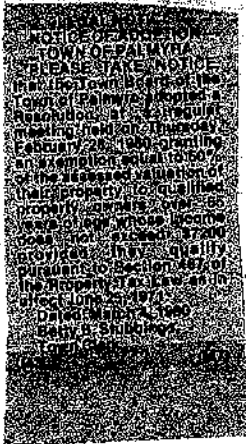 LEGAL NOTICE
NOTICE OF ADOPTION
TOWN OF PALMYRA
PLEASE TAKE NOTICE
that the Town Board of the
Town of Palmyra adopted a
Resolution at a regular
meeting held on Thursday
February 28, 1980 granting
an exemption equal to 50%
of the assessed valuation of
their property to qualified
property owners over 65
years of age whose income
does not exceed $7200
provided they qualify
pursuant to Section 467 of
the Property Tax Law as in
effect June 25, 1974
Dated: March 4, 1980
Betty B. Stubbings
Town